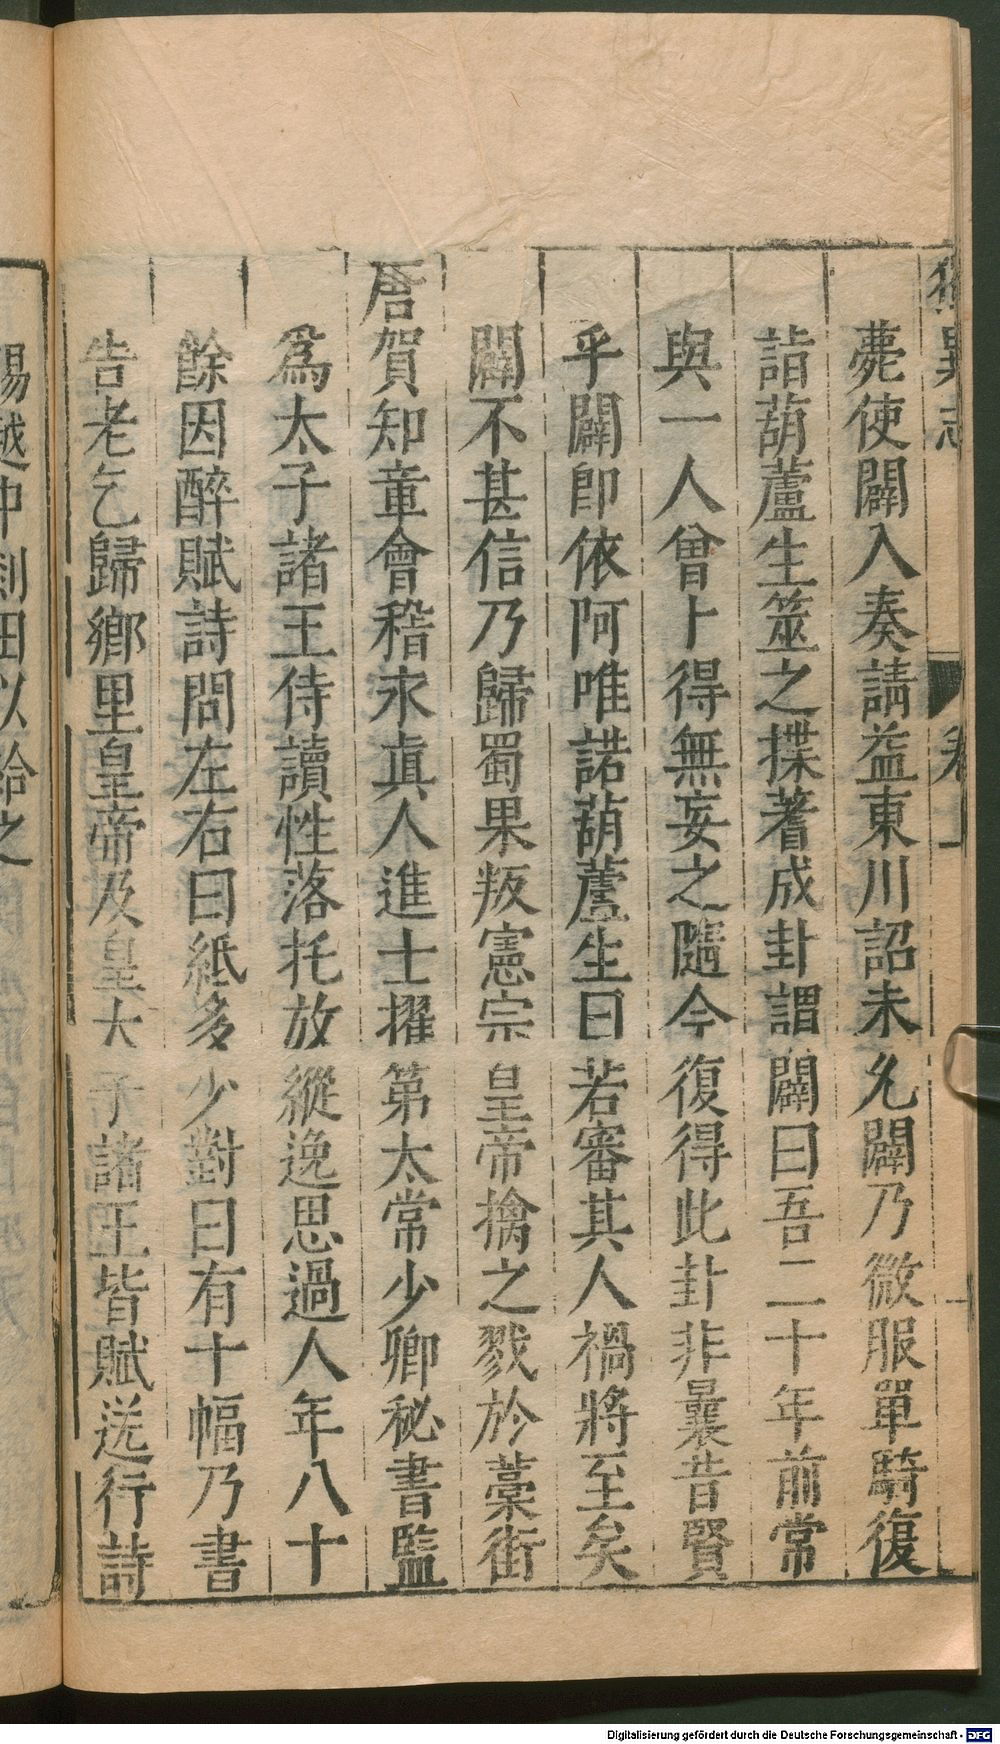 獨異志 卷上
薨使闢入奏請益東川詔未允闢乃微服單騎復
詣葫蘆生筮之揲蓍成卦謂闢曰吾二十年前常
與一人曾卜得無妄之隨今復得此卦非曩昔賢
乎闢卽依阿唯諾葫蘆生曰若審其人禍將至矣
闢不甚信乃歸蜀果叛憲宗皇帝擒之戮於藁街
唐賀知章會稽永眞人進士擢第太常少卿秘書監
爲太子諸王侍讀性落托放縱逸思過人年八十
餘因醉賦詩問左右曰紙多少對曰有十幅乃書
告老乞歸鄉里皇帝及皇太子諸王皆賦送行詩
賜越中剡田以給之
Digitalisierung gefördert durch die Deutsche Forschungsgemeinschaft - DFG